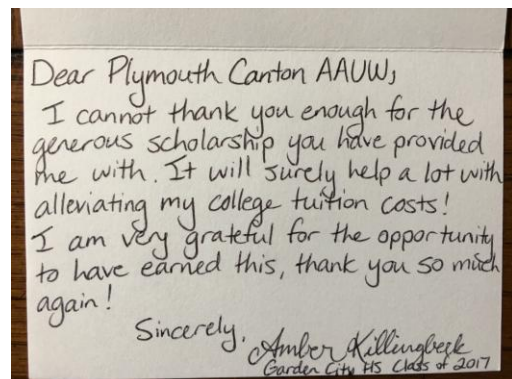 Dear Plymouth Canton AAUW,
I cannot thank you enough for the
generous scholarship you have provided
me with. It will surely help a lot with
alleviating my college tuition costs!
I am very grateful for the opportunity
to have earned this, thank you so much
again!
Sincerely,
Amber Killingbeck
Garden City HS Class of 2017